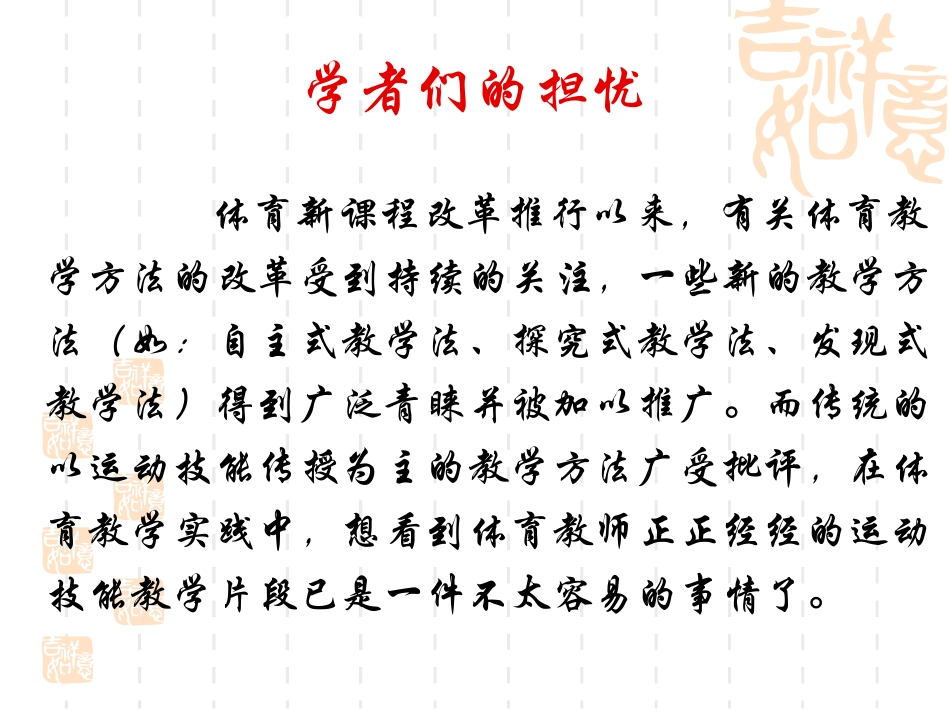 吉祥如意
学者们的担忧
体育新课程改革推行以来，有关体育教
学方法的改革受到持续的关注，一些新的教学方
法（如：自主式教学法、探究式教学法、发现式
教学法）得到广泛青睐并被加以推广。而传统的
以运动技能传授为主的教学方法广受批评，在体
育教学实践中，想看到体育教师正正经经的运动
技能教学片段已是一件不太容易的事情了。
吉祥如意
吉祥如意
吉祥如意
吉祥如意
吉祥如意
吉祥如意